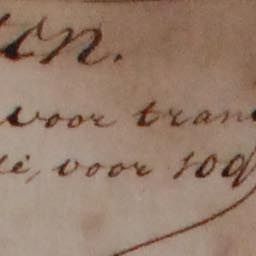 ton.
voor tran
voor 100